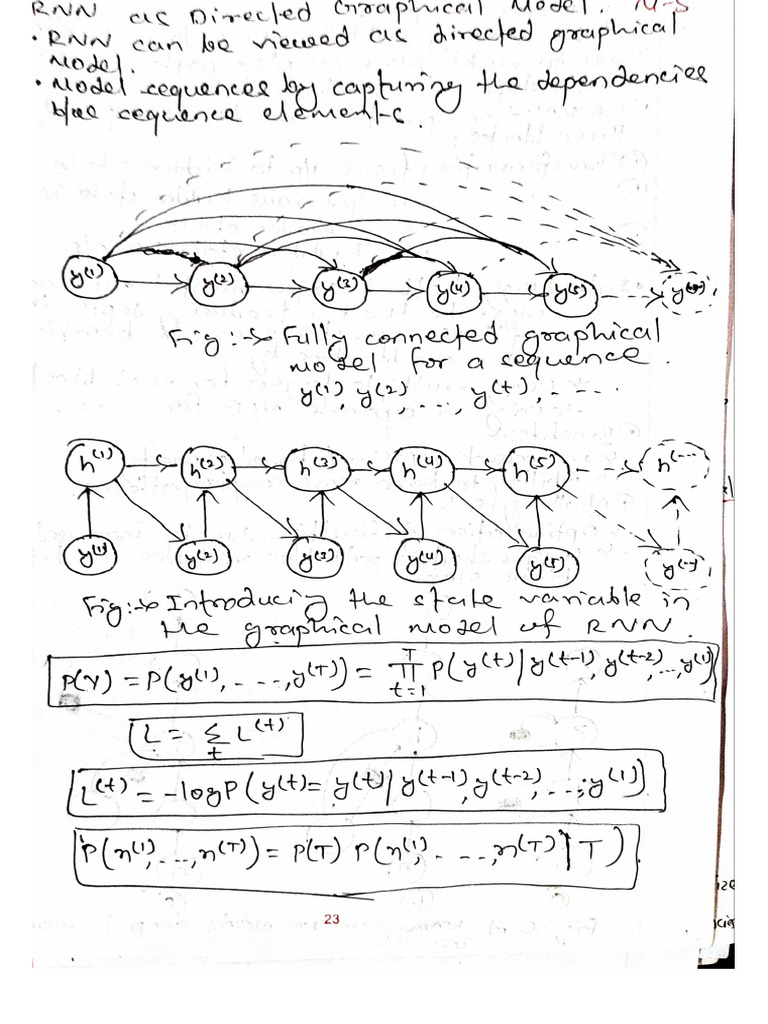 RNN as Directed Graphical Model. M-5
• RNN can be viewed as directed graphical
model.
• Model sequences by capturing the dependencies
b/w sequence elements.
y(1) y(2) y(3) y(4) y(5)
Fig:→ Fully connected graphical
model for a sequence.
y(1), y(2), ..., y(t), ....
h(1) h(2) h(3) h(4) h(5) h(...
y(1) y(2) y(3) y(4) y(5) y(..)
Fig:→ Introducing the state variable in
the graphical model of RNN.
P(Y) = P(y(1), ...., y(T)) = T∏t=1 P(y(t) | y(t-1), y(t-2), ..., y(1))
L = Σt L(t)
L(t) = -log P(y(t) = y(t) | y(t-1), y(t-2), ..., y(1))
P(x(1), ..., x(T)) = P(T) P(x(1), ...., x(T) | T)
23